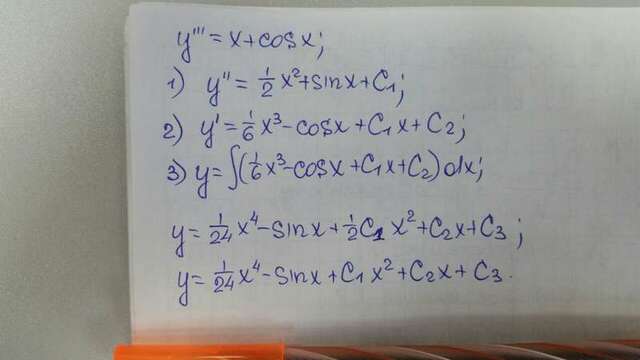 y''' = x + cos x;
1) y'' = 1/2 x² + sin x + C₁;
2) y' = 1/6 x³ - cos x + C₁x + C₂;
3) y = ∫(1/6 x³ - cos x + C₁x + C₂) dx;
y = 1/24 x⁴ - sin x + 1/2 C₁ x² + C₂x + C₃;
y = 1/24 x⁴ - sin x + C₁x² + C₂x + C₃.